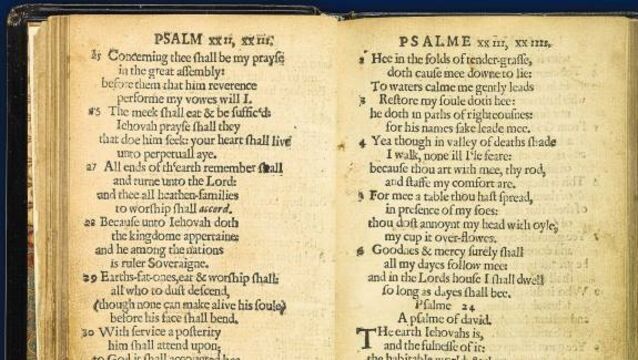 PSALM xxii, xxiii.
25 Concerning thee shall be my prayse
in the great assembly:
before them that him reverence
performe my vowes will I.
25 The meek shall eat & be suffic'd:
Iehovah prayse shall they
that doe him seek: your heart shall live
unto perpetuall aye.
27 All ends of th'earth remember shall
and turne unto the Lord:
and thee all heathen-families
to worship shall accord.
28 Because unto Iehovah doth
the kingdome appertaine:
and he among the nations
is ruler Soveraigne.
29 Earths-fat-ones, eat & worship shall:
all who to dust descend,
(though none can make alive his soule)
before his face shall bend.
30 With service a posterity
him shall attend upon;
to God it shall accounted bee
PSALME xxiii, xxiiii.
2 Hee in the folds of tender-grasse,
doth cause mee downe to lie:
To waters calme me gently leads
3 Restore my soule doth hee:
he doth in paths of righteousnes:
for his names sake leade mee.
4 Yea though in valley of deaths shade
I walk, none ill I'le feare:
because thou art with mee, thy rod,
and staffe my comfort are.
5 For mee a table thou hast spread,
in presence of my foes:
thou dost annoynt my head with oyle,
my cup it over-flowes.
6 Goodnes & mercy surely shall
all my dayes follow mee:
and in the Lords house I shall dwell
so long as dayes shall bee.
Psalme 24
A psalme of david.
The earth Iehovahs is,
and the fulnesse of it:
the habitable world, & they